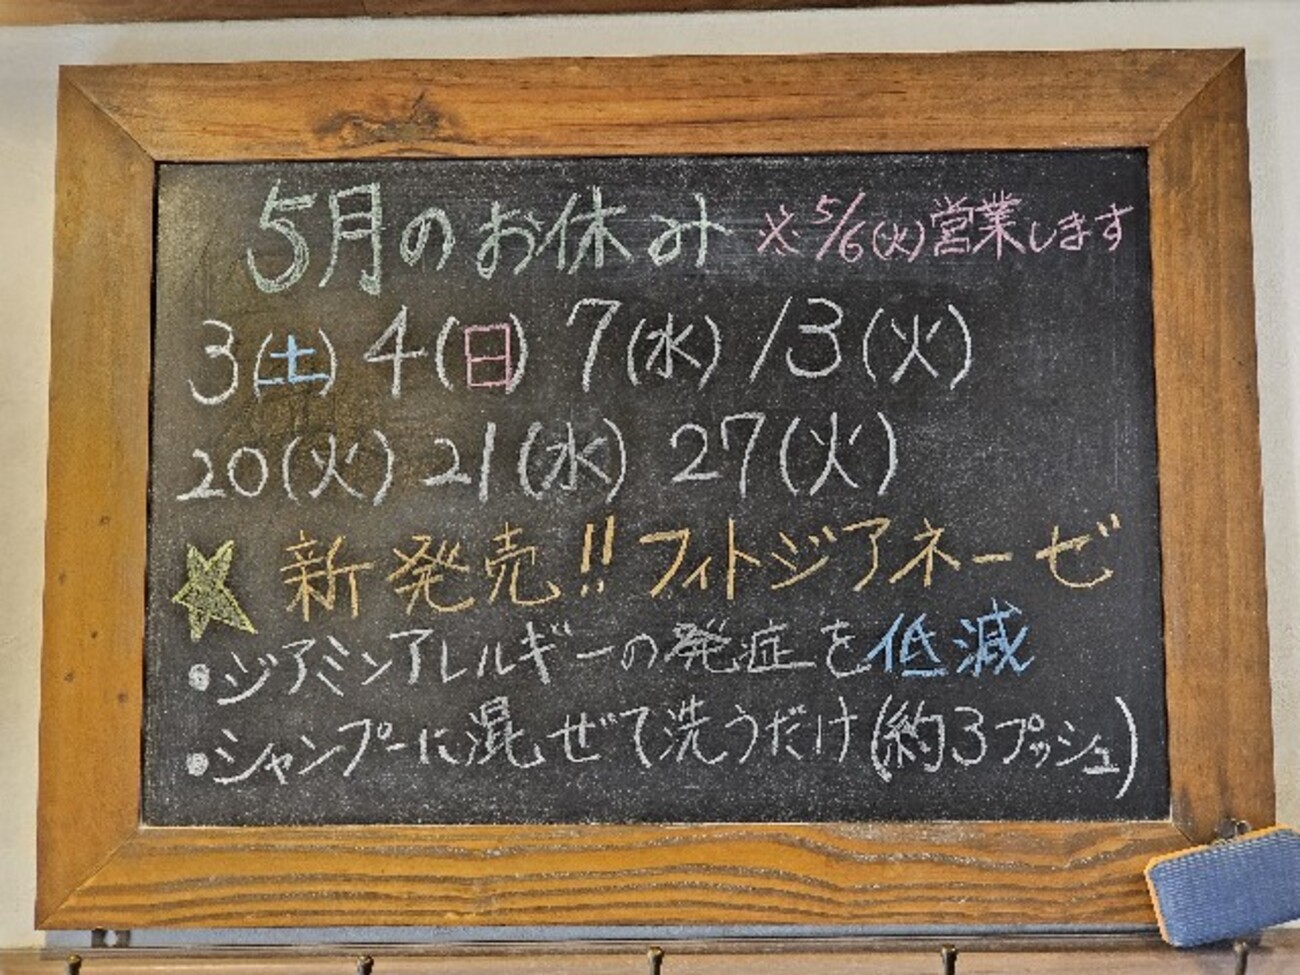 5月のお休み ※5/6(火)営業します
3(土) 4(日) 7(水) 13(火)
20(火) 21(水) 27(火)
新発売!! フィトジアネーゼ
・ジアミンアレルギーの発症を低減
・シャンプーに混ぜて洗うだけ(約3プッシュ)